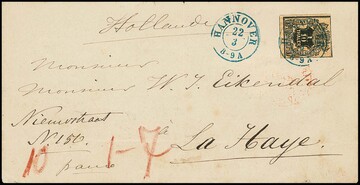 Hollande
HANNOVER
22
3
8-9A
8-9A
Monsieur
Monsieur W. J. Eikendal
Nieuwstraat
No 156.
à
La Haye.
franco
10
1-7